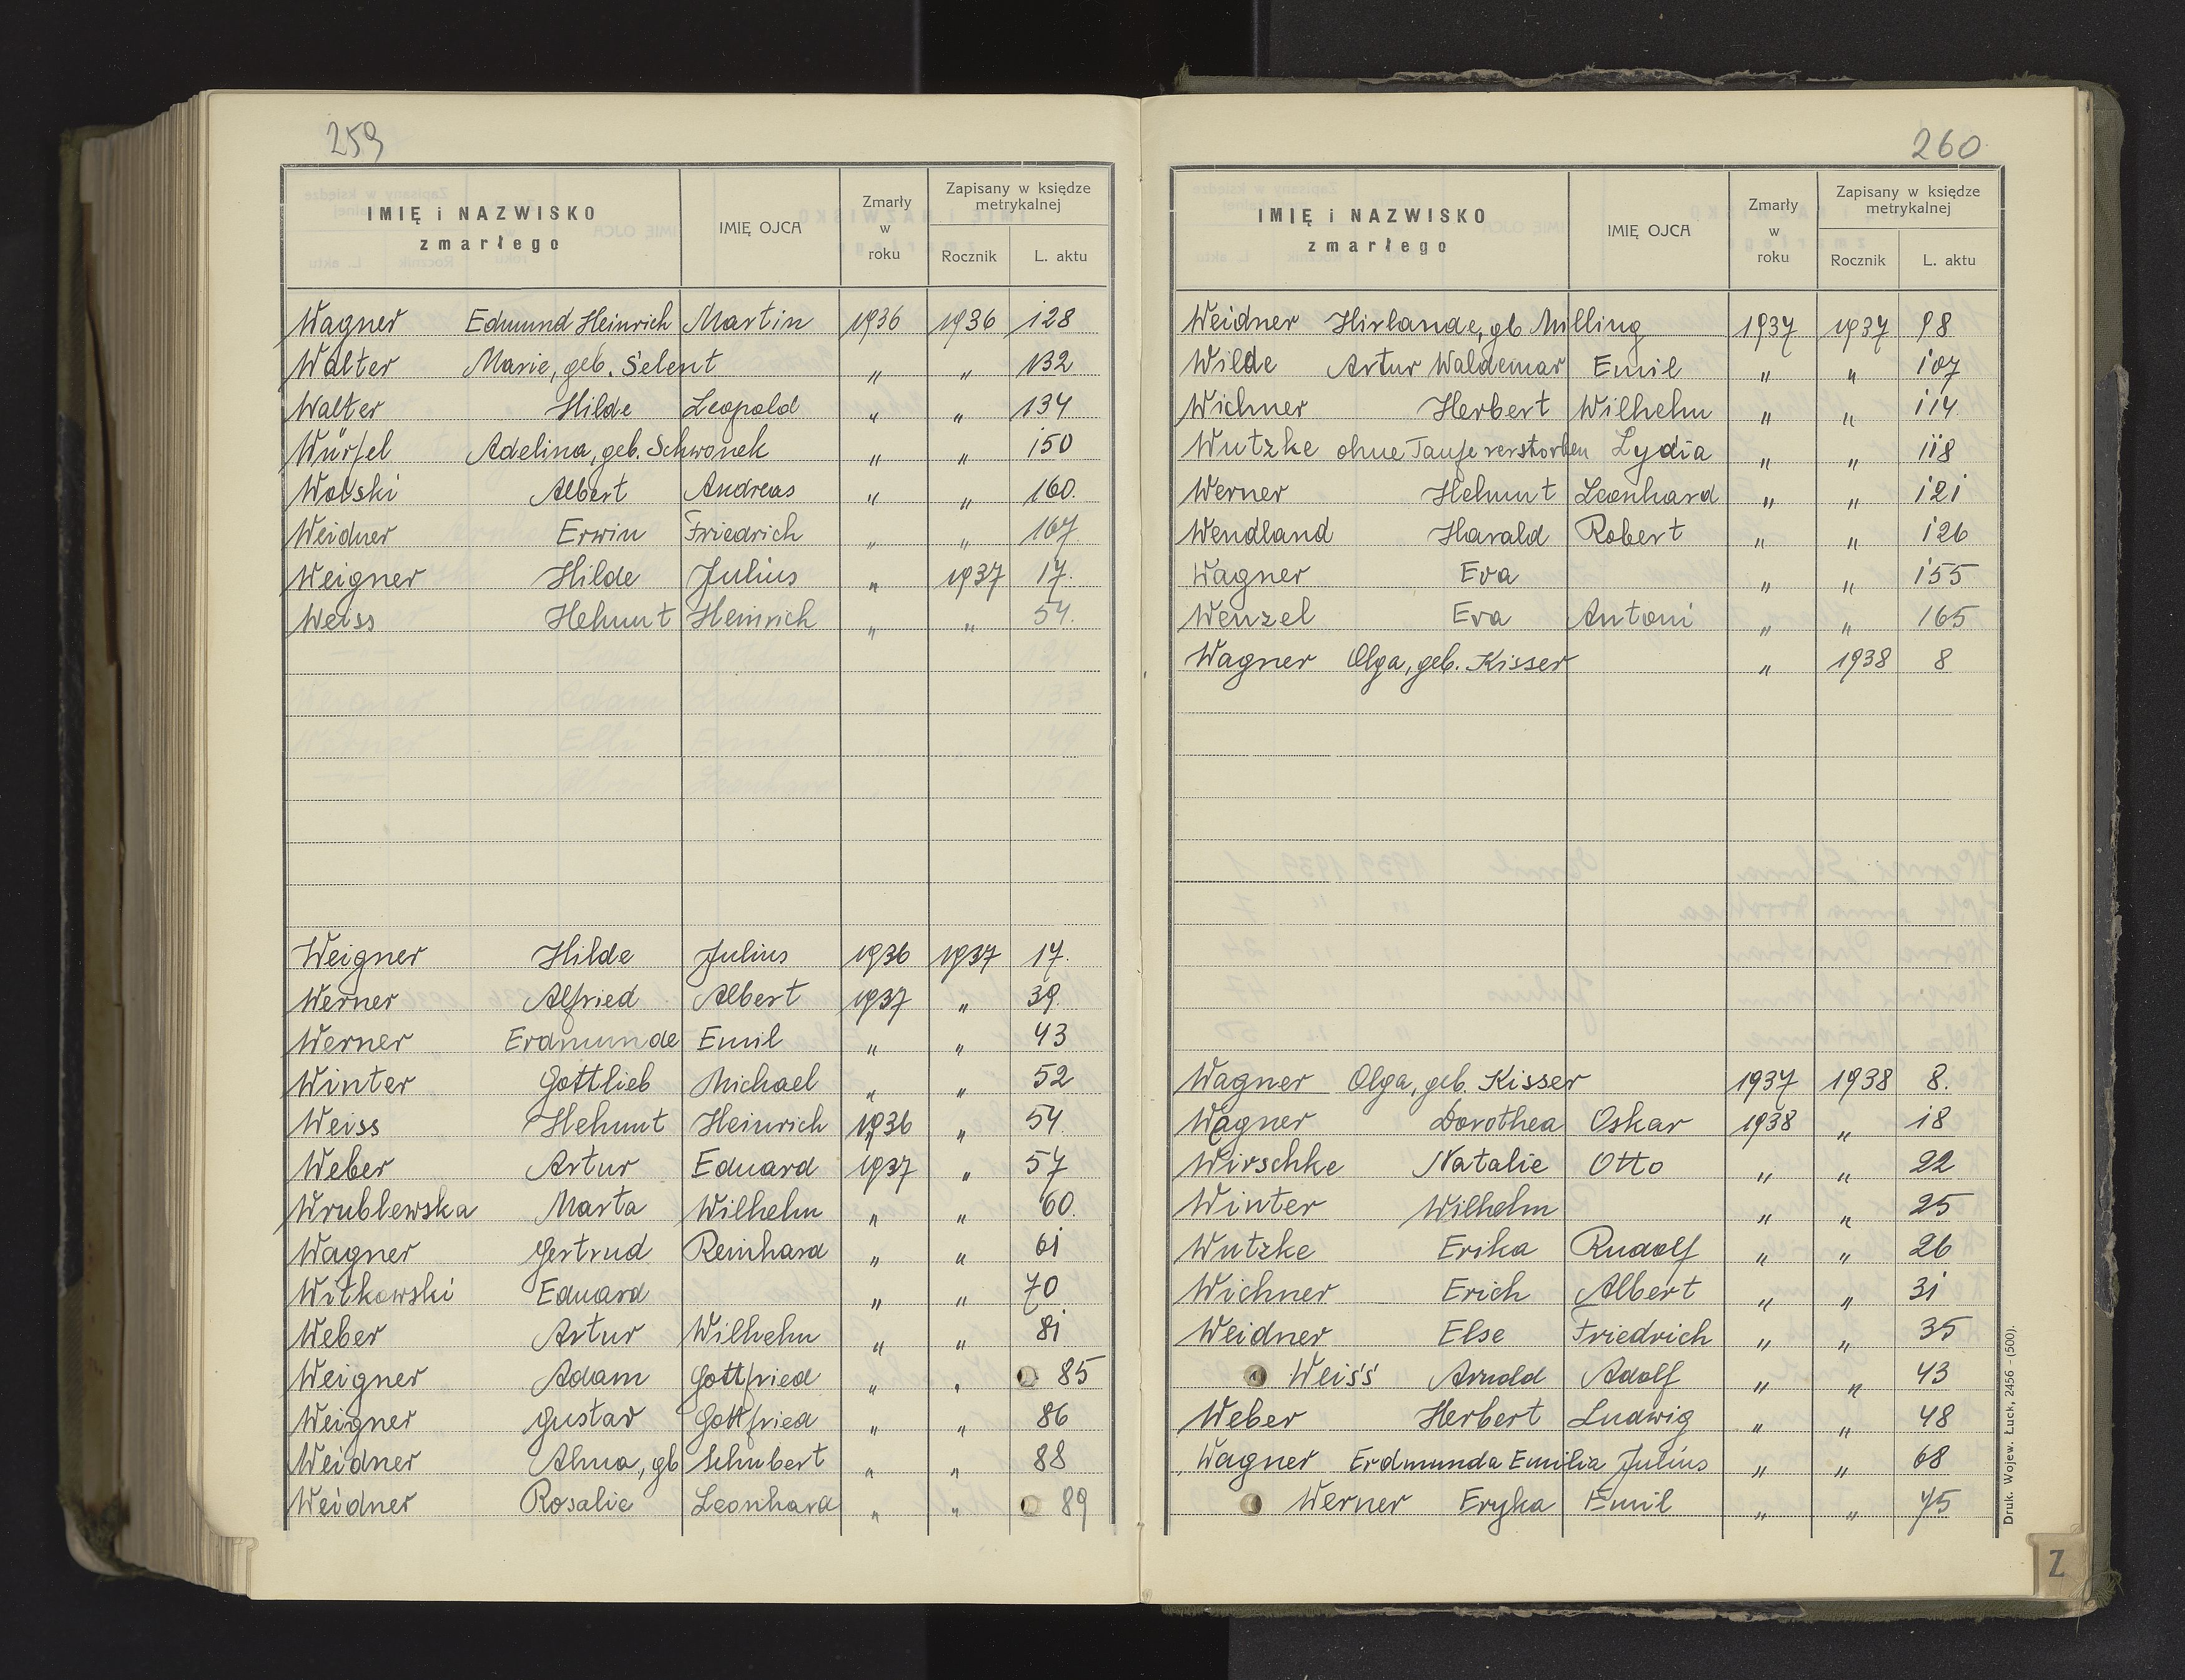 259
IMIĘ i NAZWISKO zmarłego IMIĘ OJCA Zmarły w roku Zapisany w księdze metrykalnej Rocznik L. aktu
Wagner Edmund Heinrich Martin 1936 1936 128
Walter Marie, geb. Selent " " 132
Walter Hilde Leopold " " 134
Würfel Adelina, geb. Schwonek " " 150
Wolski Albert Andreas " " 160.
Weidner Erwin Friedrich " " 167.
Weigner Hilde Julius " 1937 17.
Weiss Helmut Heinrich " " 54.
Weigner Hilde Julius 1936 1937 17.
Werner Alfried Albert 1937 " 39.
Werner Erdmunde Emil " " 43
Winter Gottlieb Michael " " 52
Weiss Helmut Heinrich 1936 " 54
Weber Artur Eduard 1937 " 57
Wrublewska Marta Wilhelm " " 60.
Wagner Gertrud Reinhard " " 61
Witkowski Eduard " " 70
Weber Artur Wilhelm " " 81
Weigner Adam Gottfried " " 85
Weigner Gustav Gottfried " " 86
Weidner Alma, gb Schubert " " 88
Weidner Rosalie Leonhard " " 89
260
IMIĘ i NAZWISKO zmarłego IMIĘ OJCA Zmarły w roku Zapisany w księdze metrykalnej Rocznik L. aktu
Weidner Hirlande, gb Milling 1937 1937 98
Wilde Artur Waldemar Emil " " 107
Wichner Herbert Wilhelm " " 114
Wutzke ohne Taufe verstorben Lydia " " 118
Werner Helmut Leonhard " " 121
Wendland Harald Robert " " 126
Wagner Eva " " 155
Wenzel Eva Antoni " " 165
Wagner Olga, geb. Kisser " 1938 8
Wagner Olga, geb. Kisser 1937 1938 8.
Wagner Dorothea Oskar 1938 " 18
Wirschke Natalie Otto " " 22
Winter Wilhelm " " 25
Wutzke Erika Rudolf " " 26
Wichner Erich Albert " " 31
Weidner Else Friedrich " " 35
Weiss Arnold Adolf " " 43
Weber Herbert Ludwig " " 48
Wagner Erdmunda Emilia Julius " " 68
Werner Eryka Emil " " 75
Druk. Wojew. Łuck, 2456 - (500).
Z